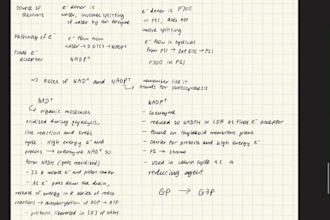 Source of electrons
e⁻ donor is water, involves splitting of water by an enzyme
e⁻ donor is P700 in PSI, does not involve splitting
Pathway of e⁻
e⁻ flow from water → → NADP⁺
e⁻ flow is cyclical from PSI → → PSI
Final e⁻ acceptor
NADP⁺
P700 in PSI
→ Roles of NAD⁺ and NADP⁺
remember like it stands for photosynthesis
NAD⁺
↳ organic molecules oxidised during glycolysis,
link reaction and krebs
cycle. High energy e⁻ and
protons → coenzyme NAD⁺ to
form NADH (gets oxidised)
- is a mobile e⁻ and proton carrier
- As e⁻ pass down the chain,
release of energy in a series of redox
reactions → phosphorylation of ADP → ATP
- protons
NADP⁺
- coenzyme
- reduced to NADPH in LDR as final e⁻ acceptor
- found on thylakoid membrane
- carrier for protons and high energy e⁻
- PS → stroma
- used in calvin cycle as a
reducing agent
GP → G3P